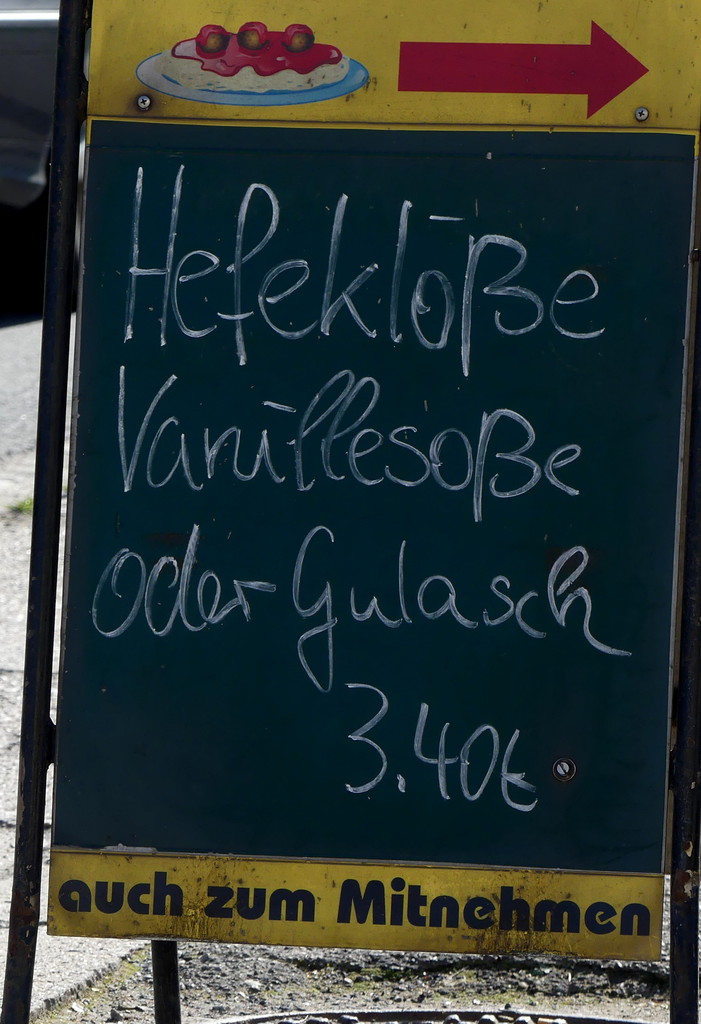 Hefeklöße
Vanillesoße
oder Gulasch
3.40€
auch zum Mitnehmen